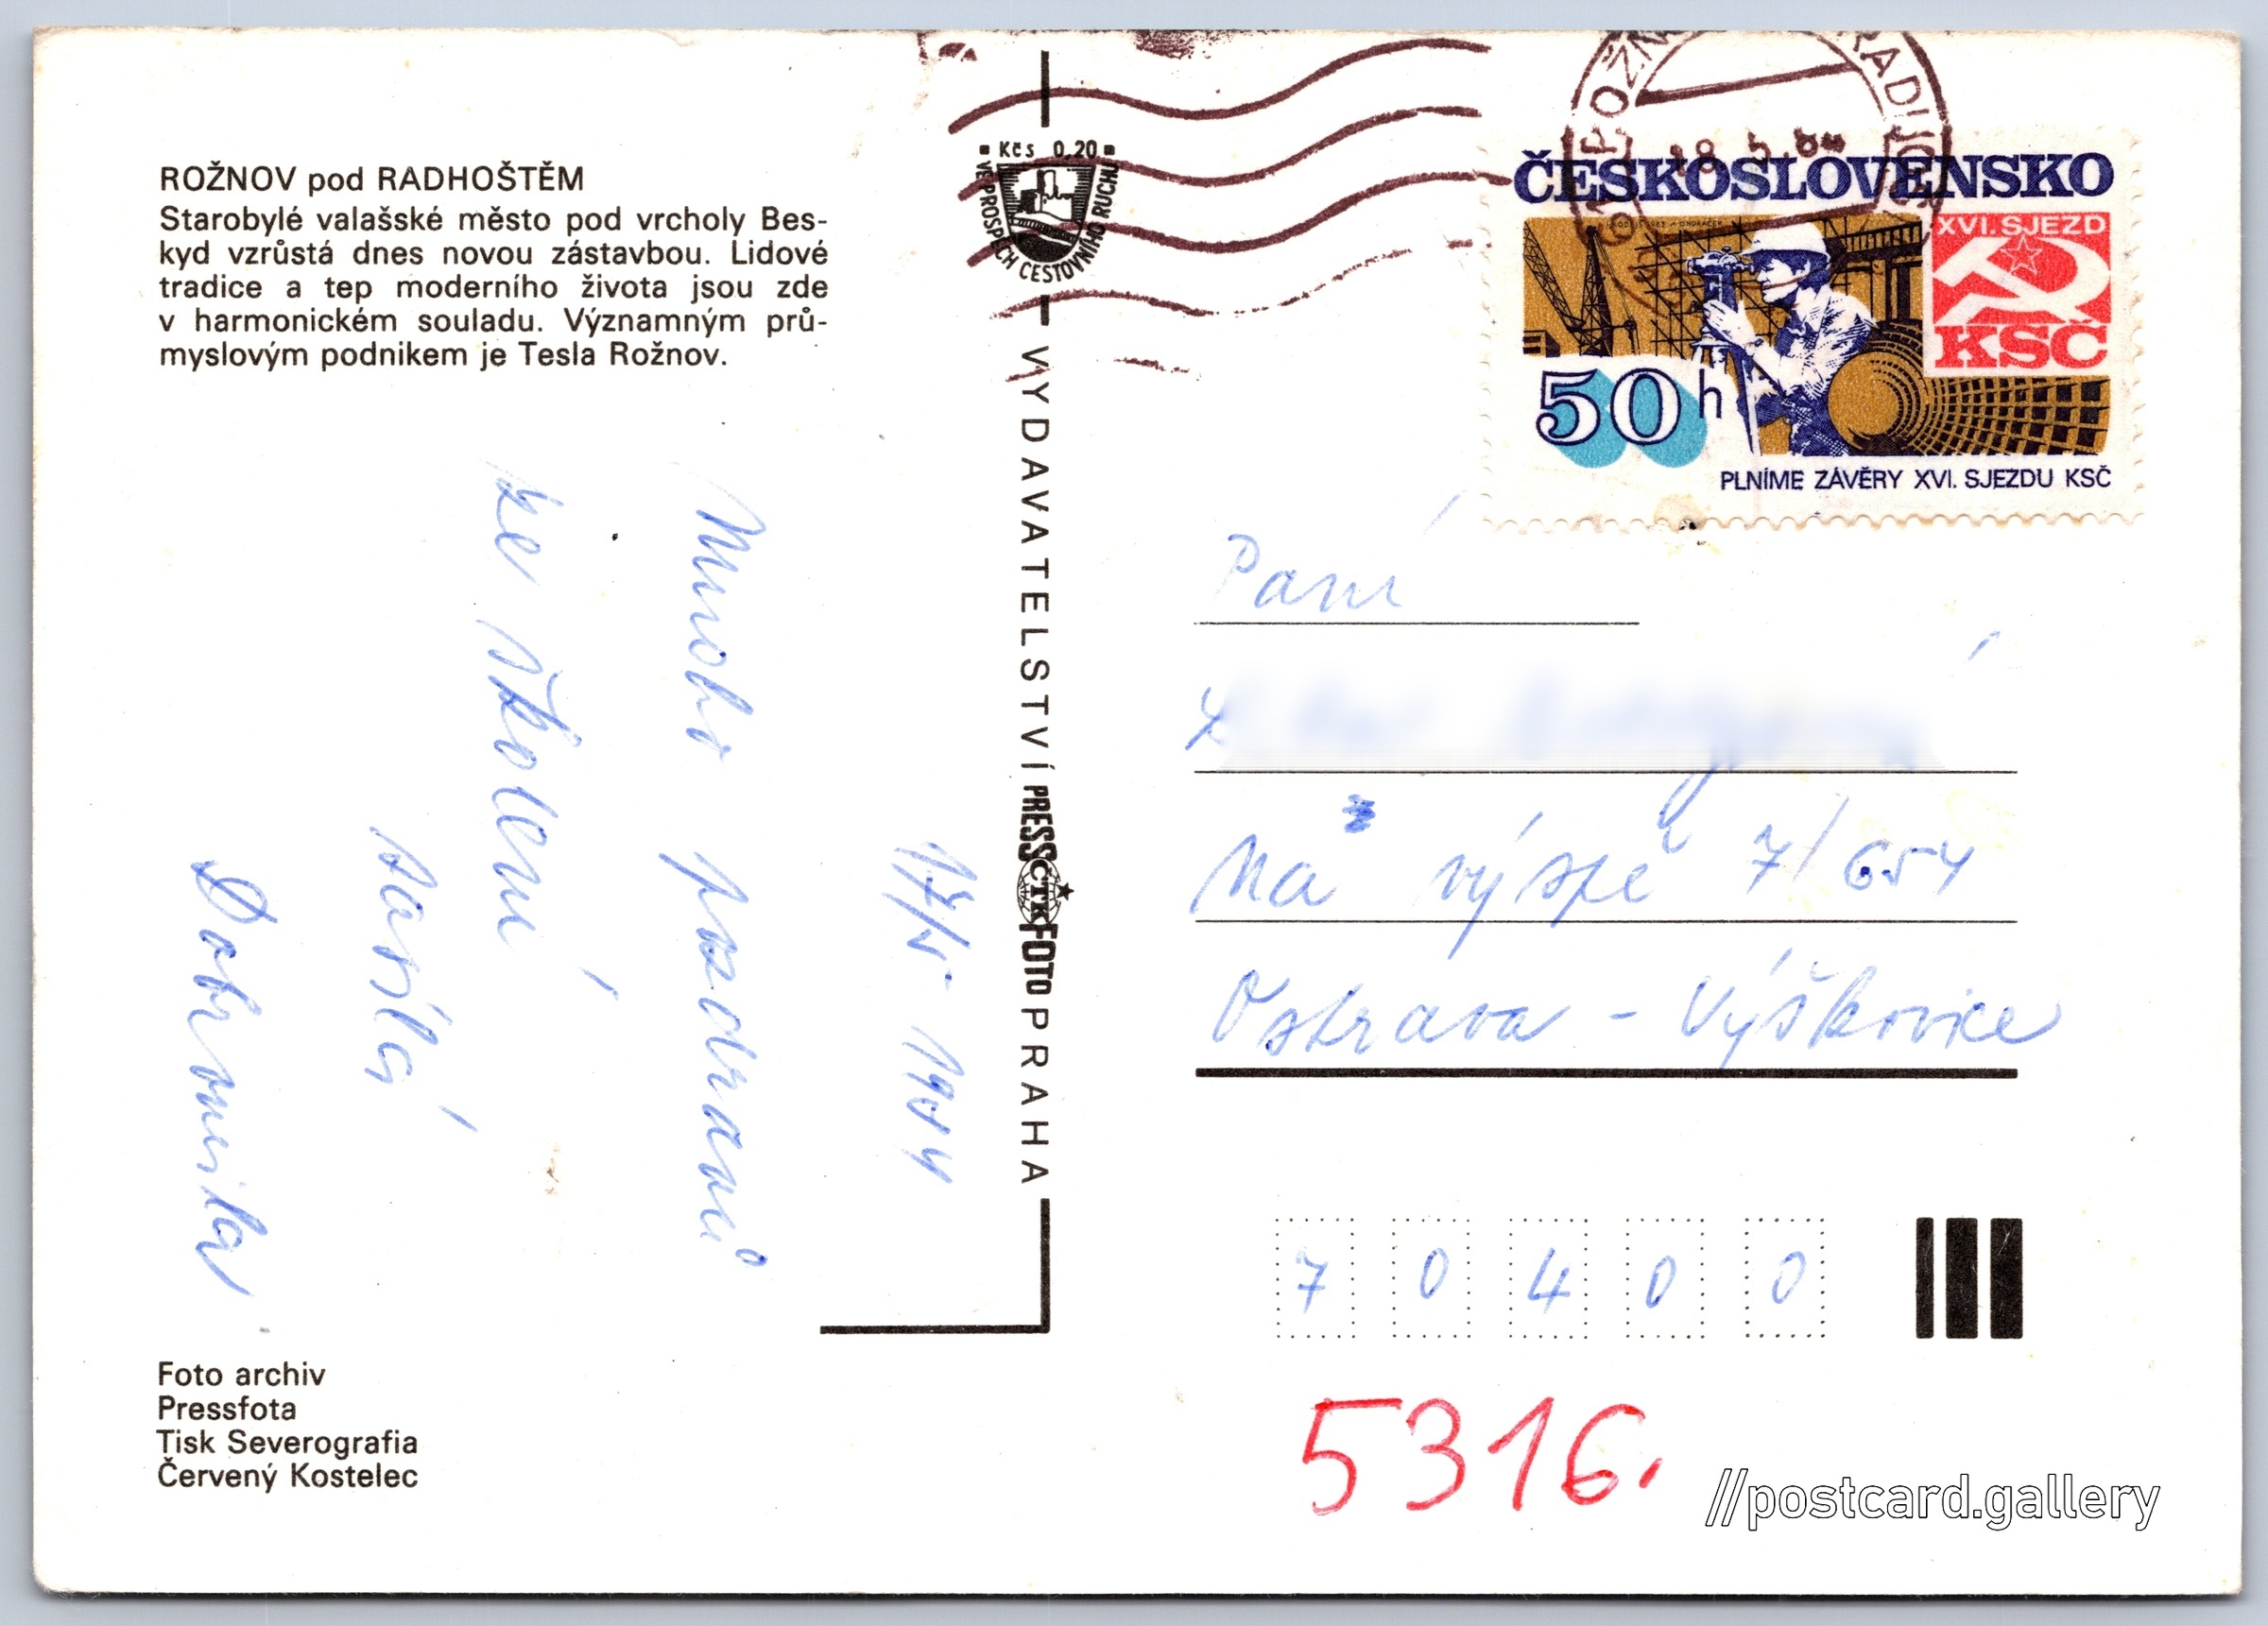 ROŽNOV pod RADHOŠTĚM
Starobylé valašské město pod vrcholy Bes-
kyd vzrůstá dnes novou zástavbou. Lidové
tradice a tep moderního života jsou zde
v harmonickém souladu. Významným prů-
myslovým podnikem je Tesla Rožnov.
17/5 1984
Mnoho pozdravů
ze školení
Foto archiv
Pressfota
Tisk Severografia
Červený Kostelec
Kčs 0,20
VE PROSPĚCH CESTOVNÍHO RUCHU
VYDAVATELSTVÍ PRESSFOTO PRAHA
ČTK
ČESKOSLOVENSKO
XVI. SJEZD
KSČ
50 h
PLNÍME ZÁVĚRY XVI. SJEZDU KSČ
Paní
Na výspě 7/654
Ostrava - Výškovice
7 0 4 0 0
5316.
//postcard.gallery